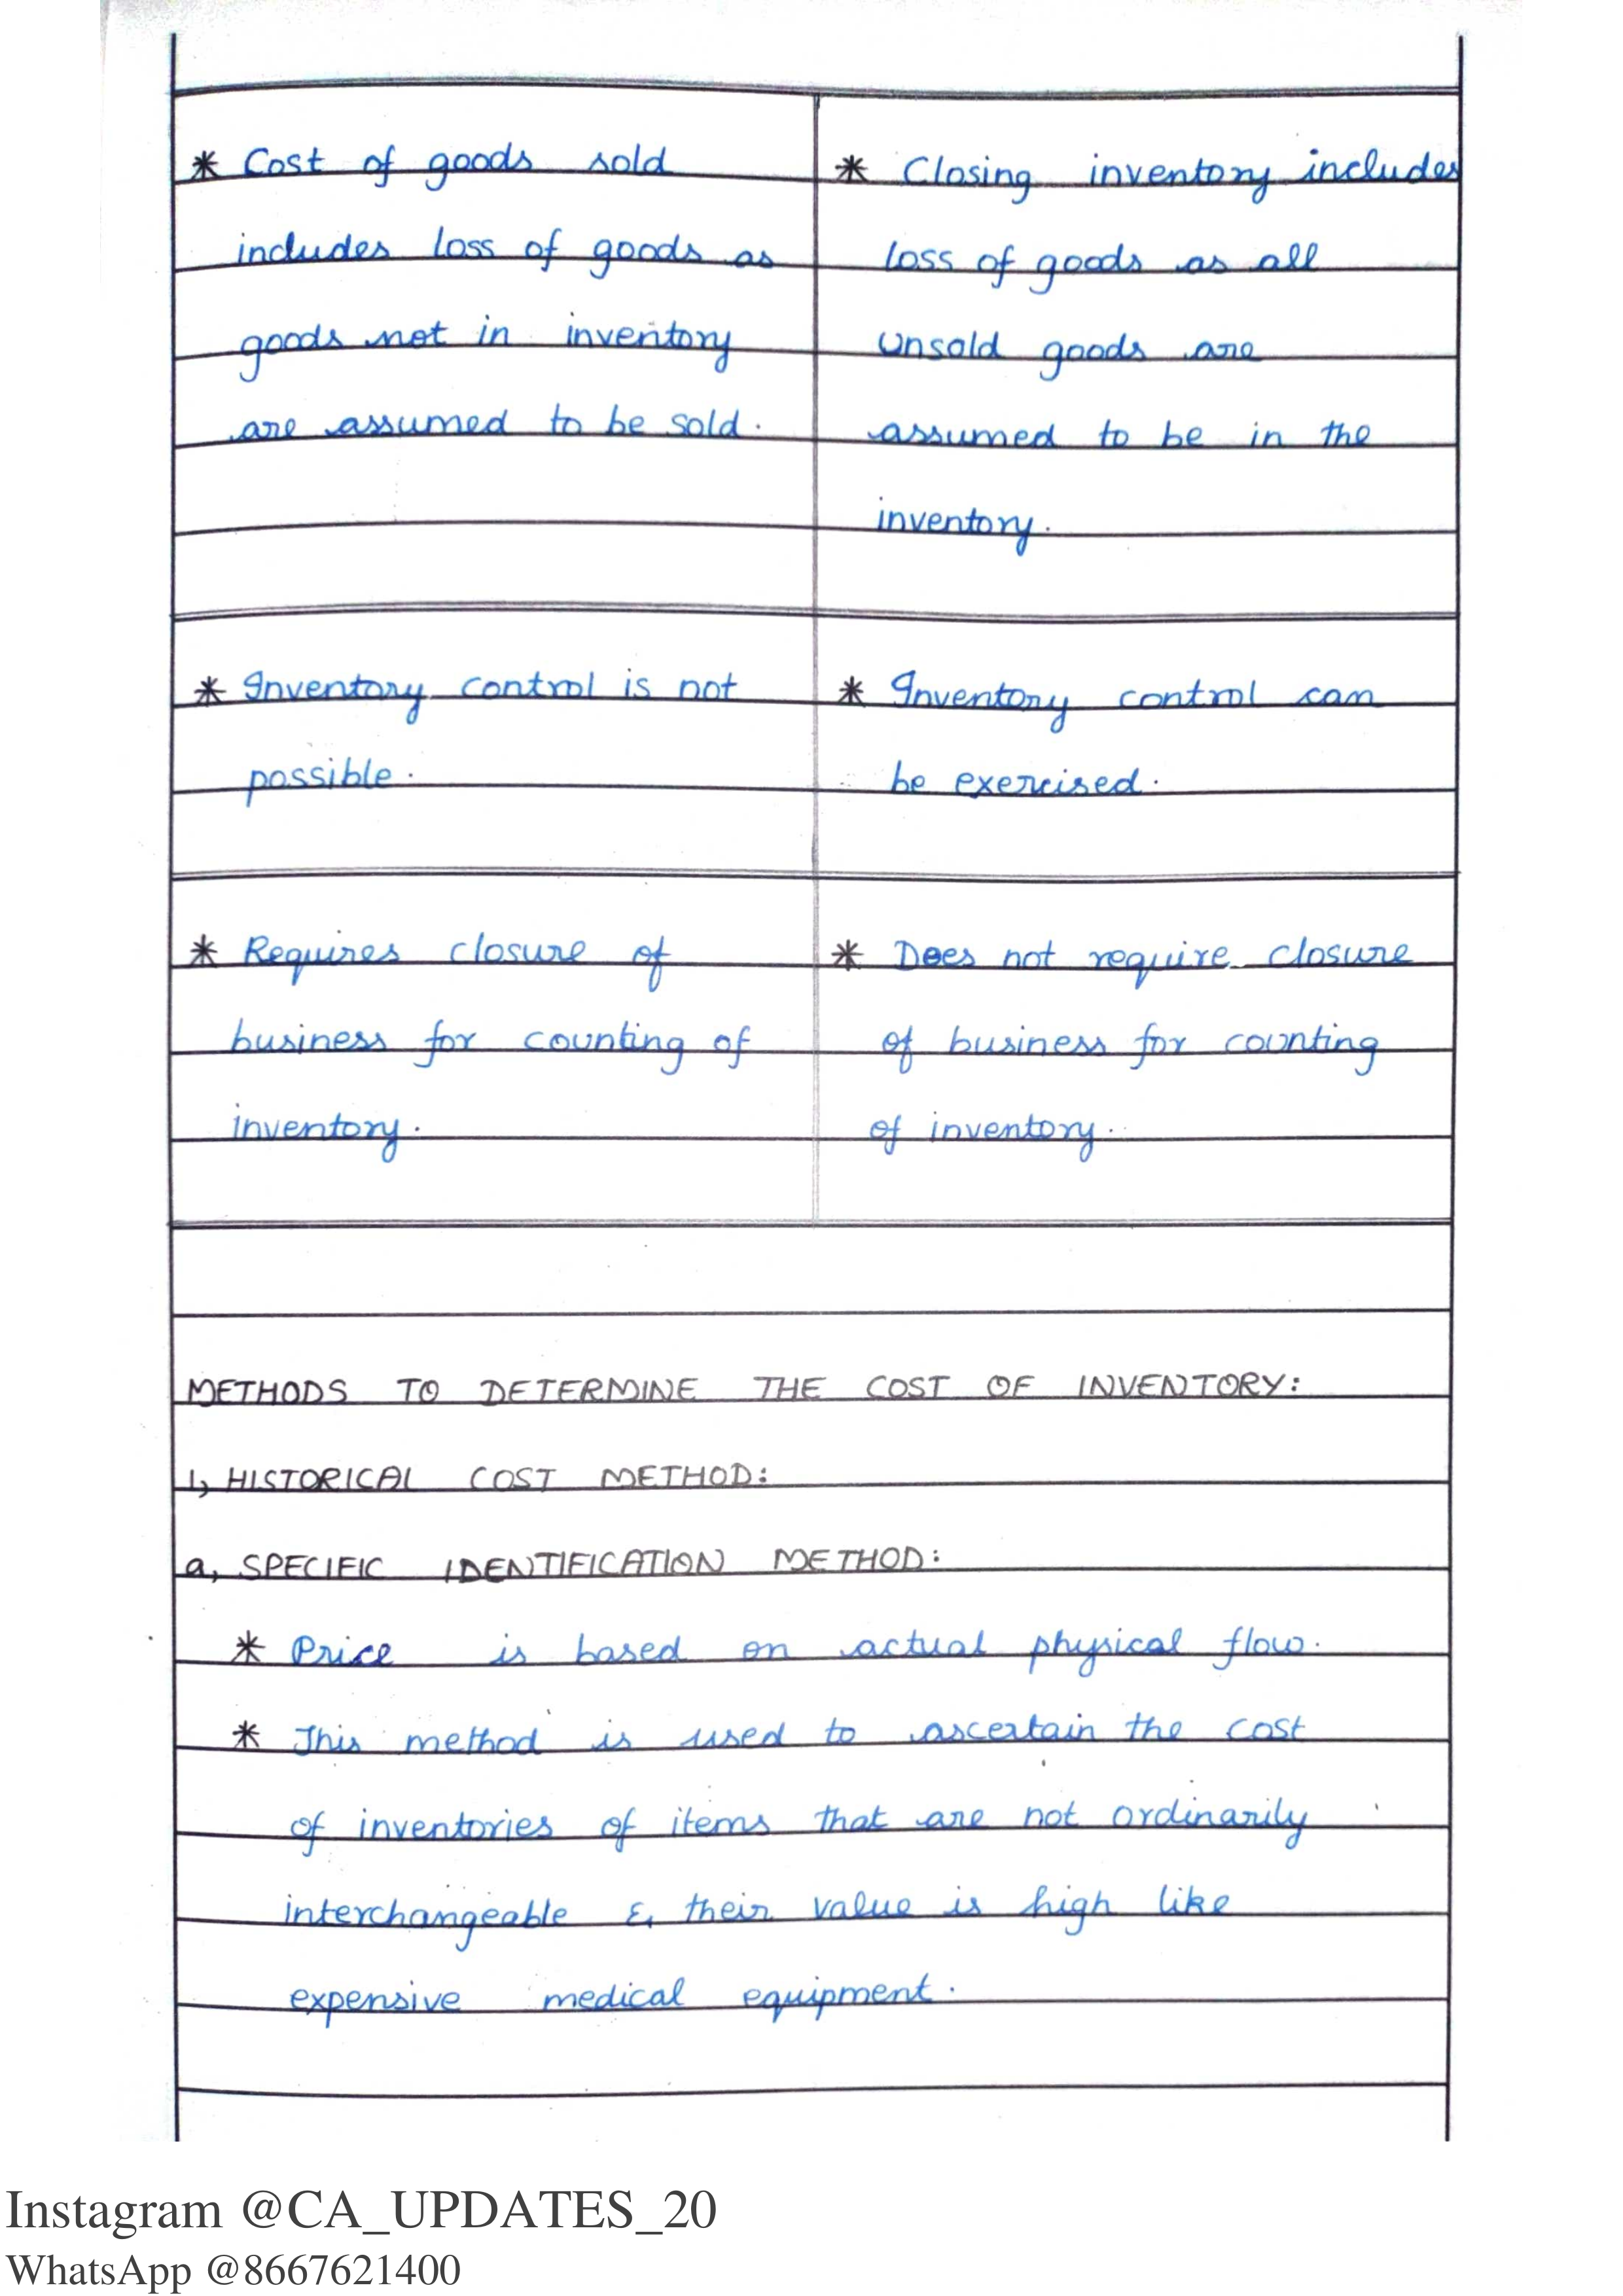 * Cost of goods sold
includes loss of goods as
goods not in inventory
are assumed to be sold.
* Closing inventory includes
loss of goods as all
unsold goods are
assumed to be in the
inventory.
* Inventory control is not
possible.
* Inventory control can
be exercised.
* Requires closure of
business for counting of
inventory.
* Does not require closure
of business for counting
of inventory.
METHODS TO DETERMINE THE COST OF INVENTORY:
1, HISTORICAL COST METHOD:
a, SPECIFIC IDENTIFICATION METHOD:
* Price is based on actual physical flow.
* This method is used to ascertain the cost
of inventories of items that are not ordinarily
interchangeable & their value is high like
expensive medical equipment.
Instagram @CA_UPDATES_20
WhatsApp @8667621400